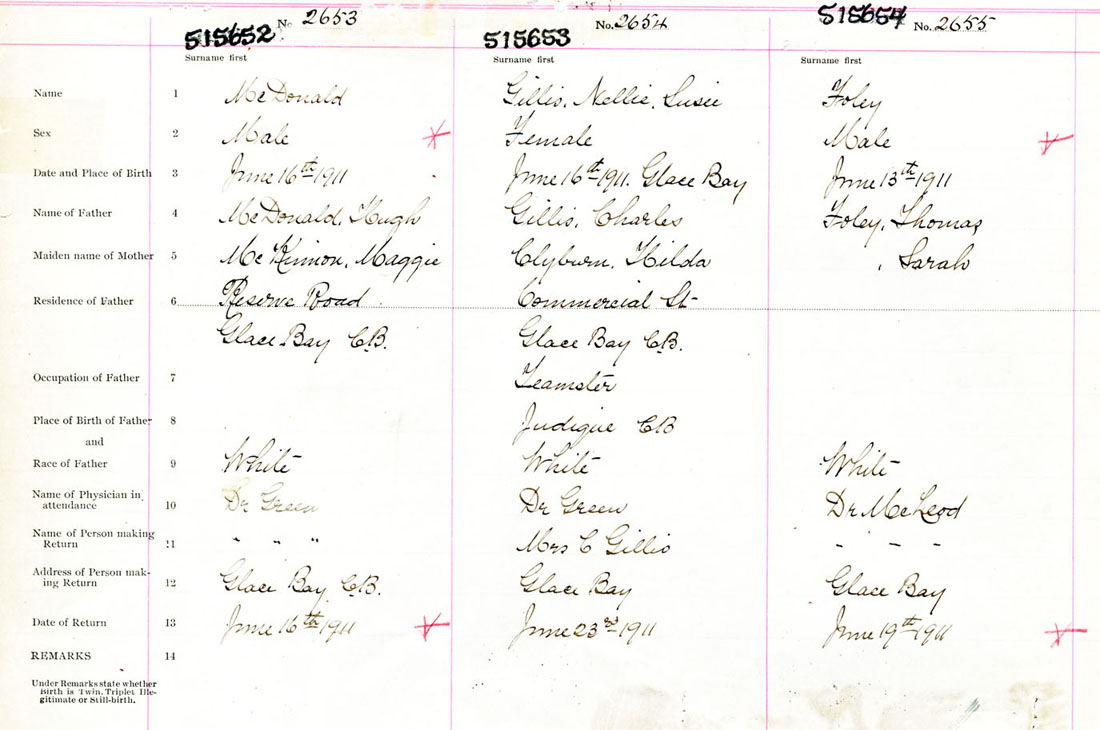 No. 2653 No. 2654 No. 2655
515652 515653 515654
Surname first Surname first Surname first
Name 1 McDonald Gillis, Nellie, Susie Foley
Sex 2 Male Female Male
Date and Place of Birth 3 June 16th 1911 June 16th 1911. Glace Bay June 13th 1911
Name of Father 4 McDonald, Hugh Gillis, Charles Foley, Thomas
Maiden name of Mother 5 McKinnon, Maggie Clyburn, Hilda , Sarah
Residence of Father 6 Reserve Road Commercial St
Glace Bay C.B. Glace Bay C.B.
Occupation of Father 7 Teamster
Place of Birth of Father 8 Judique CB
and
Race of Father 9 White White White
Name of Physician in
attendance 10 Dr Green Dr Green Dr McLeod
Name of Person making
Return 11 " " " Mrs C Gillis - - -
Address of Person mak-
ing Return 12 Glace Bay C.B. Glace Bay Glace Bay
Date of Return 13 June 16th 1911 June 23rd 1911 June 19th 1911
REMARKS 14
Under Remarks state whether
Birth is Twin, Triplet Ille-
gitimate or Still-birth.